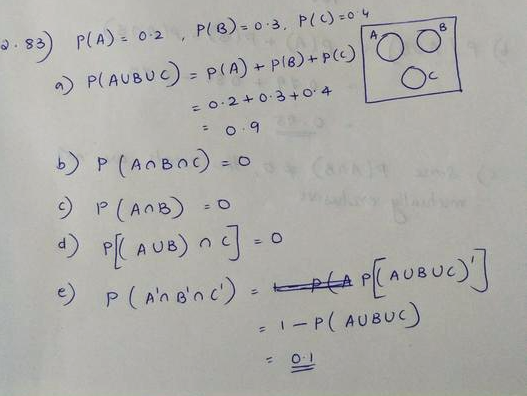 2.83) P(A) = 0.2 , P(B) = 0.3, P(C) = 0.4
A B
C
a) P(A∪B∪C) = P(A) + P(B) + P(C)
= 0.2 + 0.3 + 0.4
= 0.9
b) P(A∩B∩C) = 0
c) P(A∩B) = 0
d) P[(A∪B) ∩ C] = 0
e) P(A'∩B'∩C') = P[(A∪B∪C)']
= 1 - P(A∪B∪C)
= 0.1